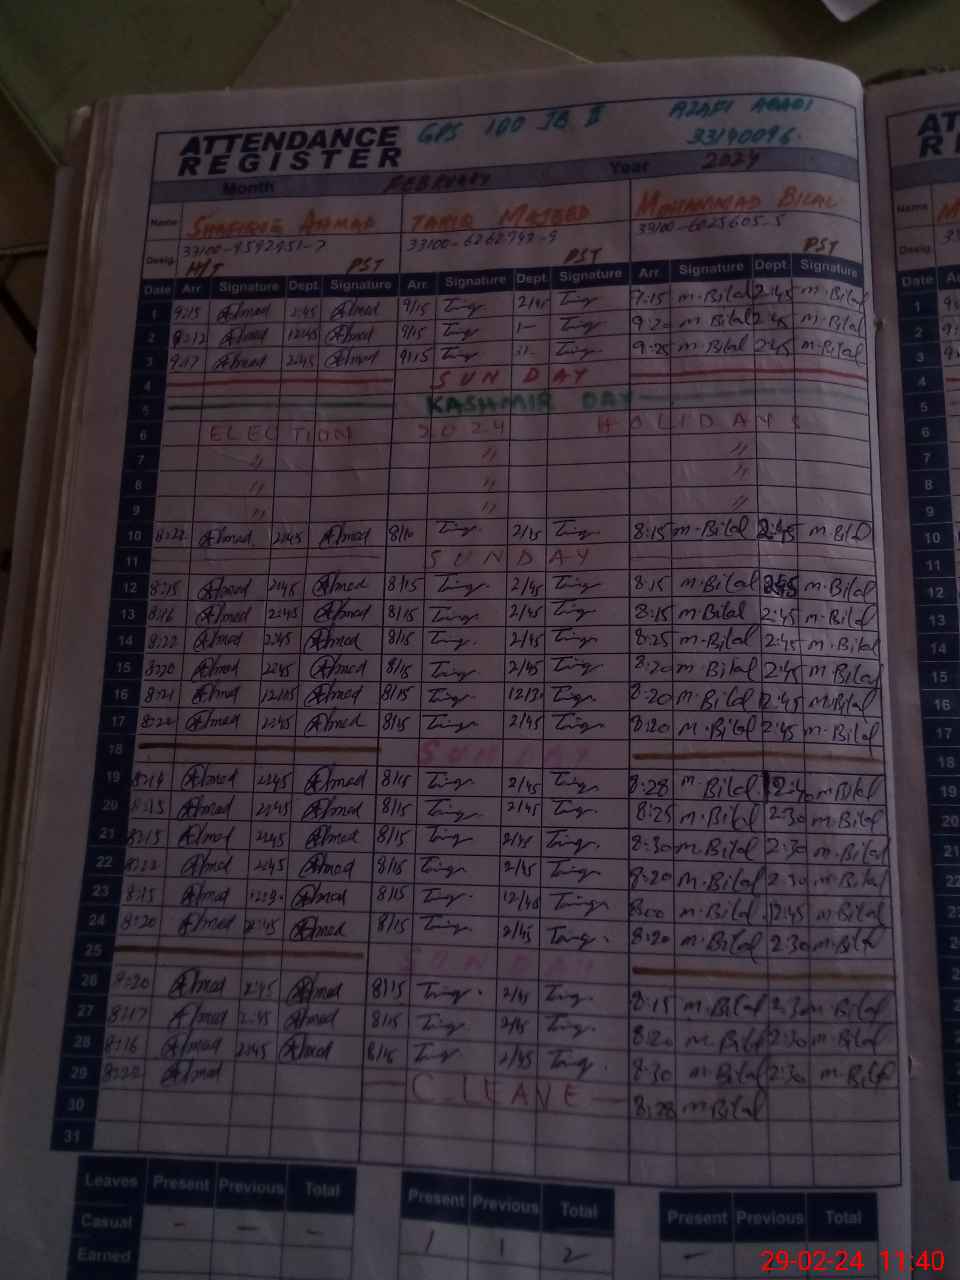 ATTENDANCE REGISTER GPS 100 JB II AZAFI ABADI
33140096
Month FEBRUARY Year 2024
Name SHAFIQUE AHMAD TARIQ MAJEED MOHAMMAD BILAL
Desig. H/T PST PST PST
Date Arr. Signature Dept. Signature Arr. Signature Dept. Signature Arr. Signature Dept. Signature
1 9:15 Ahmad 2:45 Ahmad 9/15 Tariq 2/45 Tariq 9:15 m.Bilal 2:45 m.Bilal
2 9:12 Ahmad 12:45 Ahmad 9/15 Tariq 1- Tariq 9:20 m.Bilal 2:45 m.Bilal
3 9:17 Ahmad 2:45 Ahmad 9/15 Tariq Tariq 9:25 m.Bilal 2:45 m.Bilal
4 SUNDAY
5 KASHMIR DAY
6 ELECTION 2024 HOLIDAYS
7 〃 〃 〃
8 〃 〃 〃
9 〃 〃 〃
10 8:22 Ahmad 2:45 Ahmad 8/10 Tariq 2/45 Tariq 8:15 m.Bilal 2:45 m.Bilal
11 SUNDAY
12 8:15 Ahmad 2:45 Ahmad 8/15 Tariq 2/45 Tariq 8:15 m.Bilal 2:45 m.Bilal
13 8:16 Ahmad 2:45 Ahmad 8/15 Tariq 2/45 Tariq 8:15 m.Bilal 2:45 m.Bilal
14 8:22 Ahmad 2:45 Ahmad 8/15 Tariq 2/45 Tariq 8:25 m.Bilal 2:45 m.Bilal
15 8:20 Ahmad 2:45 Ahmad 8/15 Tariq 2/45 Tariq 8:20 m.Bilal 2:45 m.Bilal
16 8:21 Ahmad 12:45 Ahmad 8/15 Tariq Tariq 8:20 m.Bilal 12:45 m.Bilal
17 8:22 Ahmad 2:45 Ahmad 8/15 Tariq 2/45 Tariq 8:20 m.Bilal 2:45 m.Bilal
18 SUNDAY
19 8:19 Ahmad 2:45 Ahmad 8/15 Tariq 2/45 Tariq 8:28 m.Bilal m.Bilal
20 8:15 Ahmad 2:45 Ahmad 8/15 Tariq 2/45 Tariq 8:25 m.Bilal 2:30 m.Bilal
21 8:15 Ahmad 2:45 Ahmad 8/15 Tariq 2/45 Tariq 8:30 m.Bilal 2:30 m.Bilal
22 8:22 Ahmad 2:45 Ahmad 8/15 Tariq 2/45 Tariq 8:20 m.Bilal 2:30 m.Bilal
23 8:15 Ahmad Ahmad 8/15 Tariq 12/45 Tariq m.Bilal 12:45 m.Bilal
24 8:20 Ahmad 2:45 Ahmad 8/15 Tariq 2/45 Tariq 8:20 m.Bilal 2:30 m.Bilal
25 SUNDAY
26 8:20 Ahmad 2:45 Ahmad 8/15 Tariq 2/45 Tariq 8:15 m.Bilal 2:30 m.Bilal
27 8:17 Ahmad 2:45 Ahmad 8/15 Tariq 2/45 Tariq 8:20 m.Bilal 2:30 m.Bilal
28 8:16 Ahmad 2:45 Ahmad 8/15 Tariq 2/45 Tariq 8:30 m.Bilal 2:30 m.Bilal
29 8:22 Ahmad C.LEAVE 8:28 m.Bilal
30
31
Leaves Present Previous Total Present Previous Total Present Previous Total
Casual - - - 1 1 2 -
Earned
29-02-24 11:40